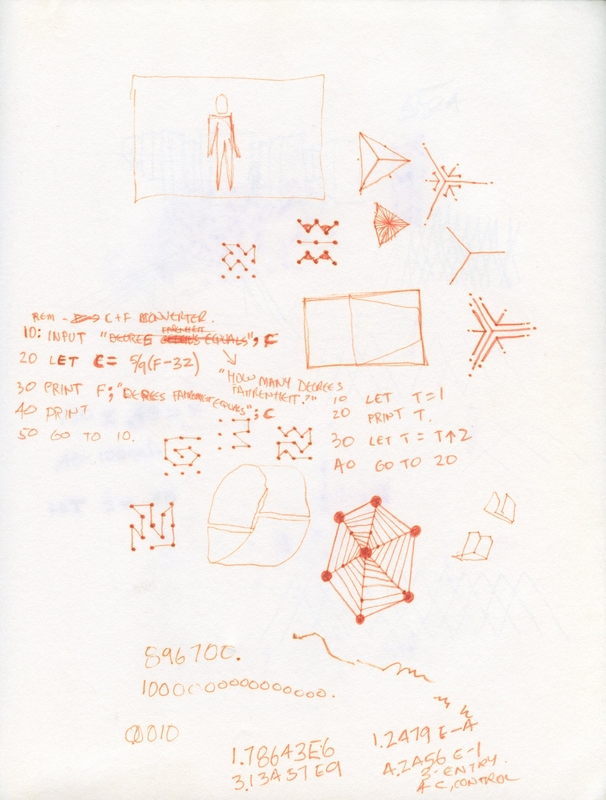 REM - C+F CONVERTER.
10: INPUT "DEGREE FARENHEIT EQUALS", F
20 LET C = 5/9(F-32)
"HOW MANY DEGREES
FAHRENHEIT?"
30 PRINT F; "DEGREES FAHRENHEIT EQUALS"; C
40 PRINT
50 GO TO 10.
10 LET T=1
20 PRINT T.
30 LET T = T↑2
40 GO TO 20
896700.
1000000000000000.
0010
1.78643E6
3.13457E9
1.2479 E-4
4.2456 E-1
3-ENTRY
4 C, CONTROL